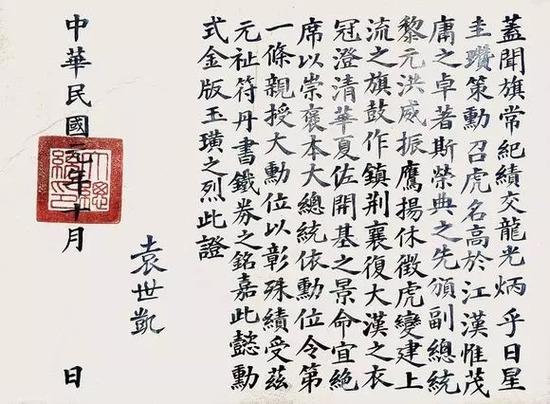 蓋聞旗常紀績交龍光炳乎日星
圭瓚策勳召虎名高於江漢惟茂
庸之卓著斯榮典之先頒副總統
黎元洪威振鷹揚休徵虎變建上
流之旗鼓作鎮荆襄復大漢之衣
冠澄清華夏佐開基之景命宜絶
席以崇襃本大總統依勳位令第
一條親授大勳位以彰殊績受兹
元祉符丹書鐵券之銘嘉此懿勳
式金版玉璜之烈此證
袁世凱
中華民國元年十月 日
大總統印